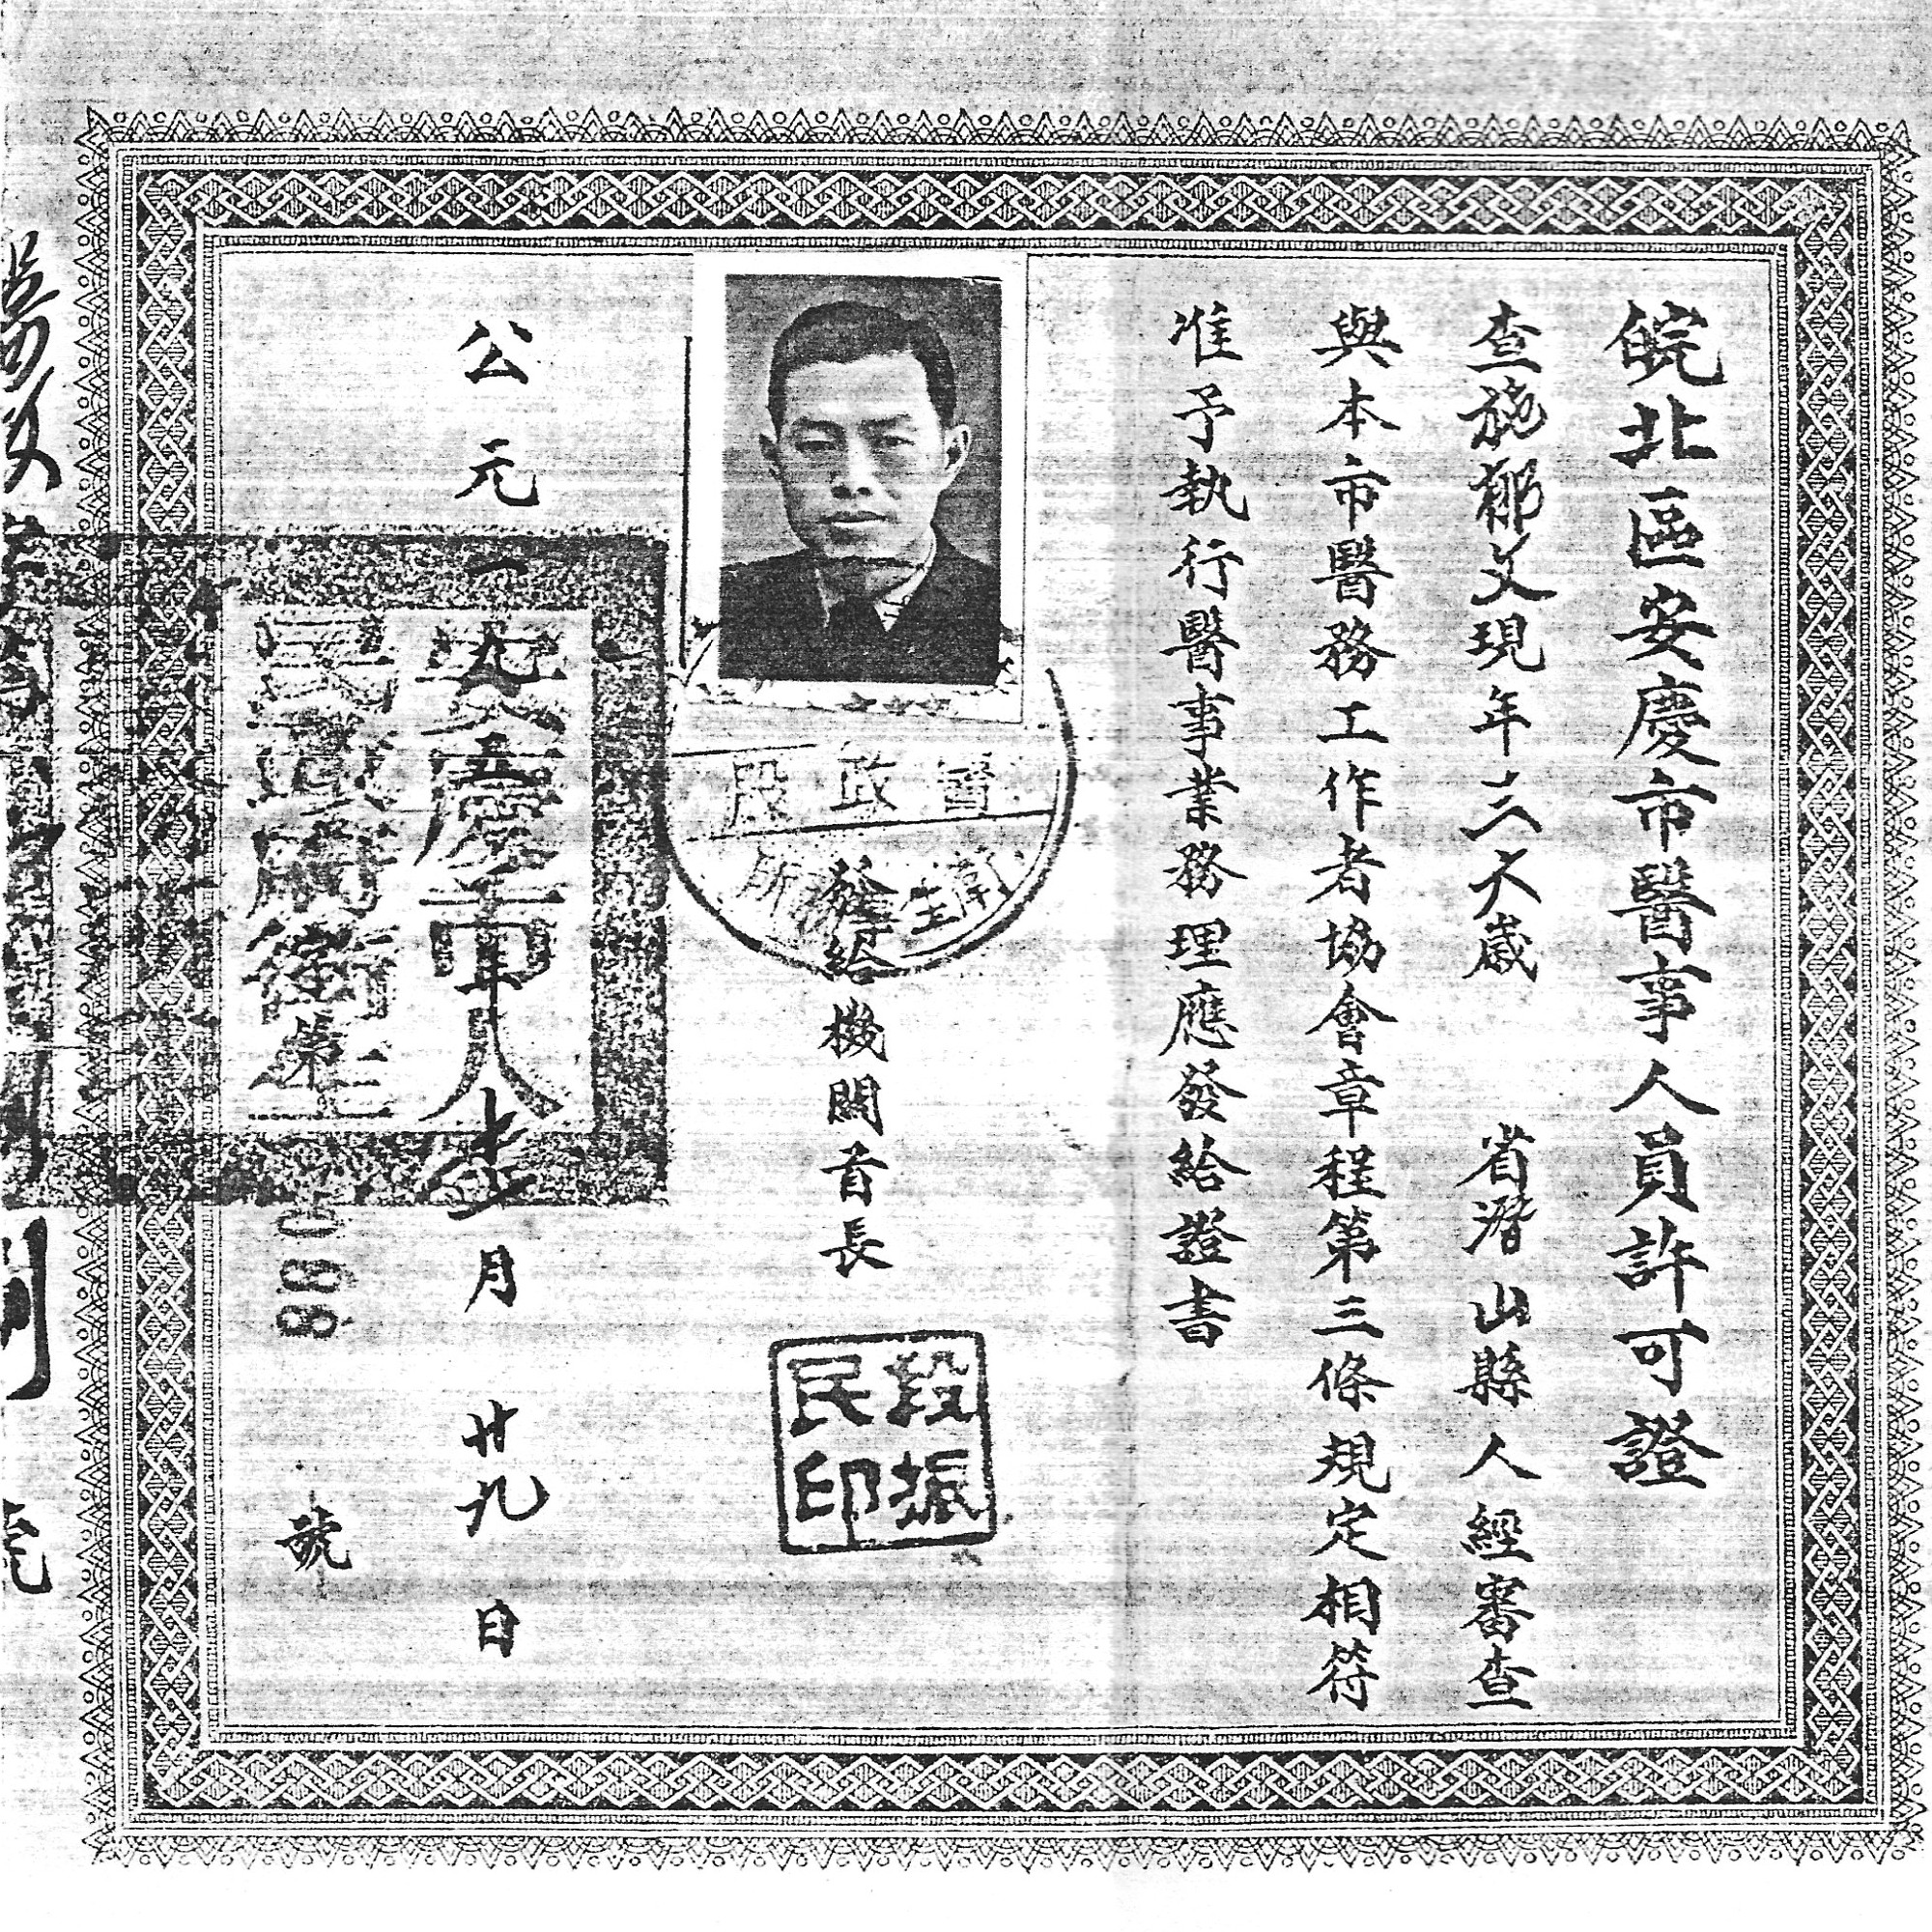 皖北區安慶市醫事人員許可證
查施郁文現年三六歲 省潛山縣人經審查
與本市醫務工作者協會章程第三條規定相符
准予執行醫事業務理應發給證書
醫政股
衛生所
發給機關首長
段振民印
公元一九五 年 月廿九日
安慶市人民政府衛生
第 0088 號